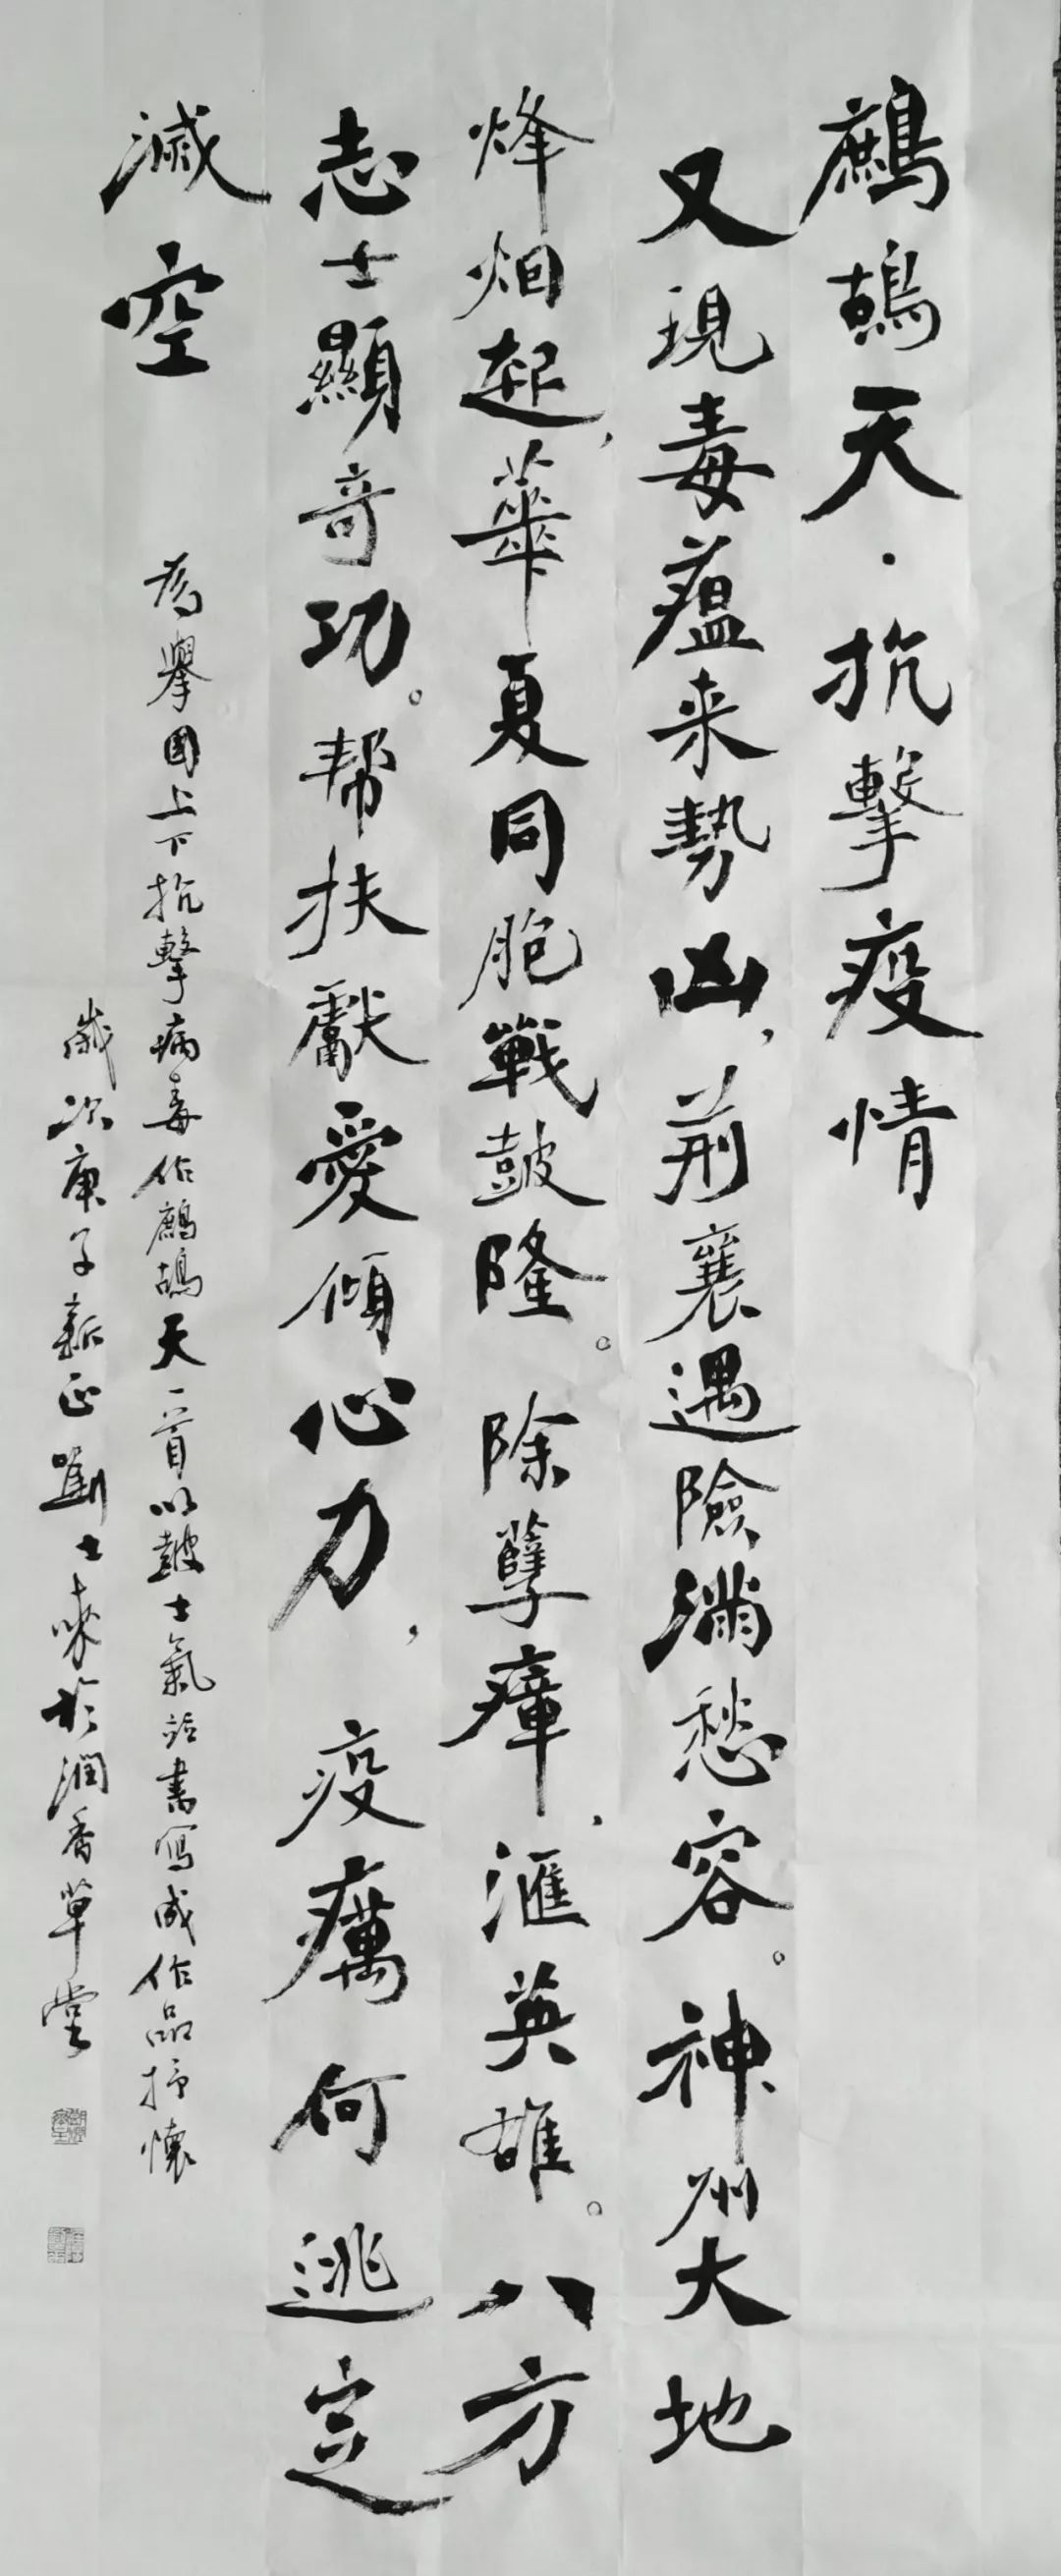 鷓鴣天·抗擊疫情
又現毒瘟来勢凶，荊襄遇險滿愁容。神州大地
烽烟起，華夏同胞戰鼓隆。除孽瘴，滙英雄。八方
志士顯奇功。帮扶獻愛傾心力，疫癘何逃定
滅空
為舉國上下抗擊病毒作鷓鴣天一首以鼓士氣 書寫成作品抒懷
歲次庚子新正劉士来於潤香草堂